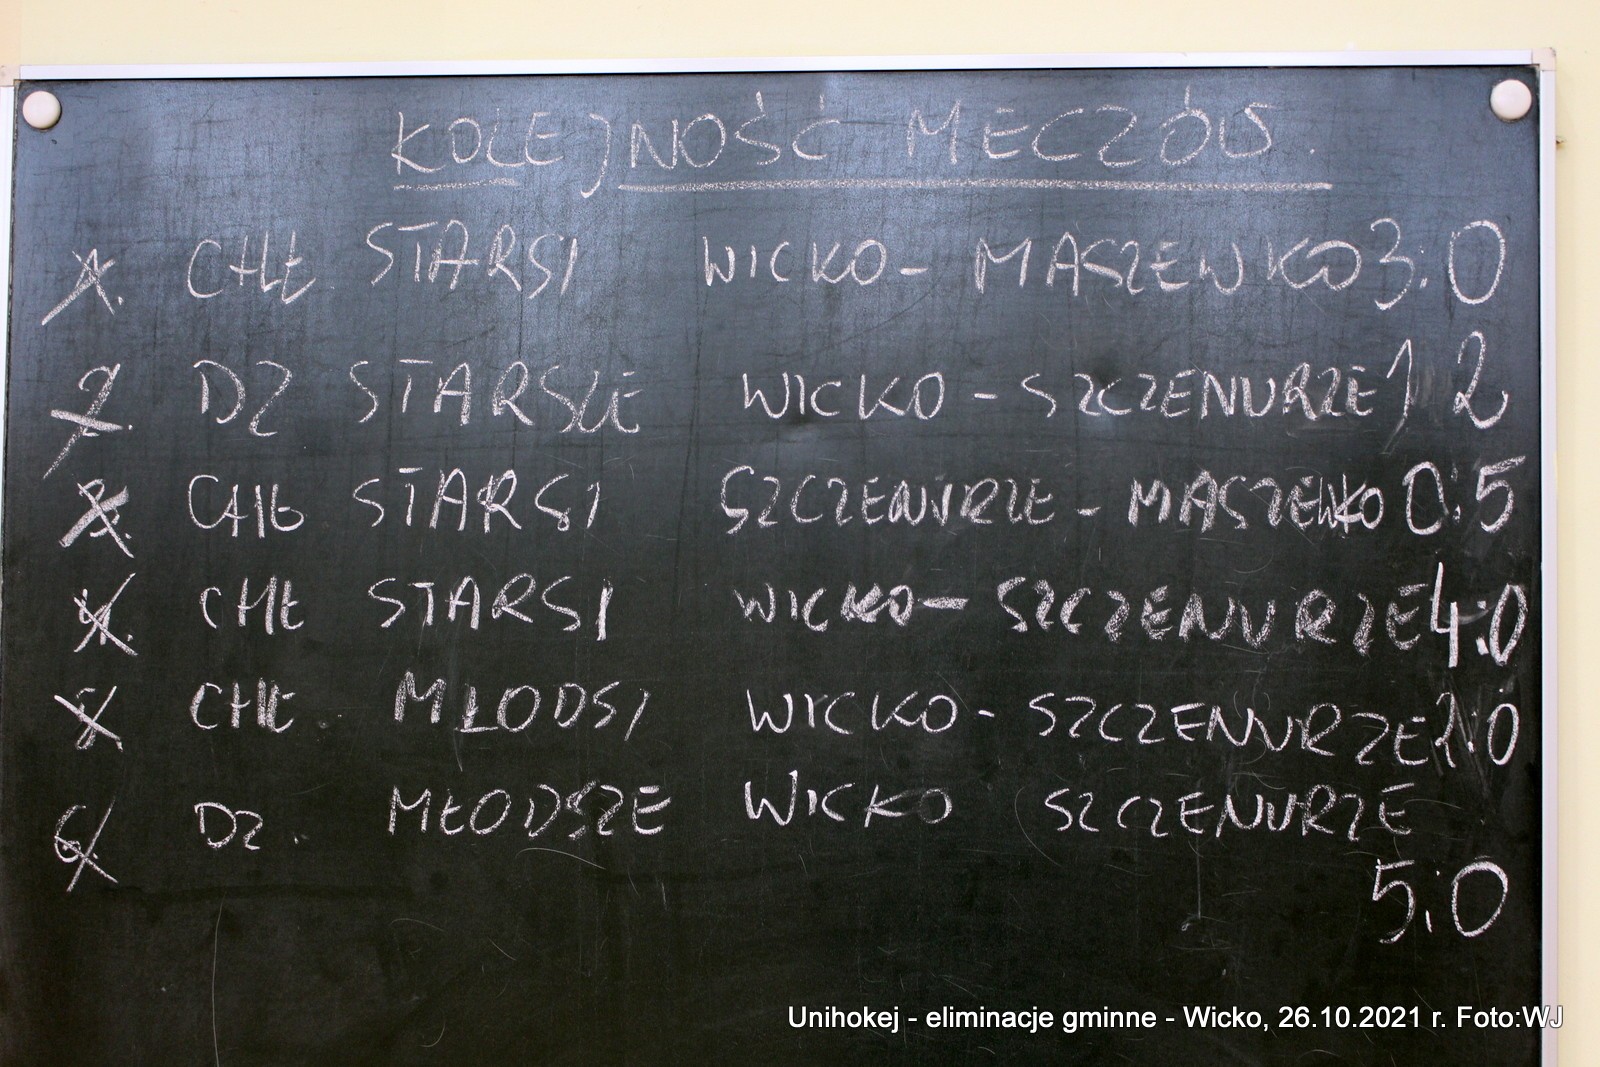 KOLEJNOŚĆ MECZÓW.
1. CHŁ STARSI WICKO - MASZEWKO 3:0
2. DZ STARSZE WICKO - SZCZENURZE 1 2
3. CHŁ STARSI SZCZENURZE - MASZEWKO 0:5
4. CHŁ STARSI WICKO - SZCZENURZE 4:0
5. CHŁ MŁODSI WICKO - SZCZENURZE 2:0
6. DZ. MŁODSZE WICKO SZCZENURZE
5:0
Unihokej - eliminacje gminne - Wicko, 26.10.2021 r. Foto:WJ